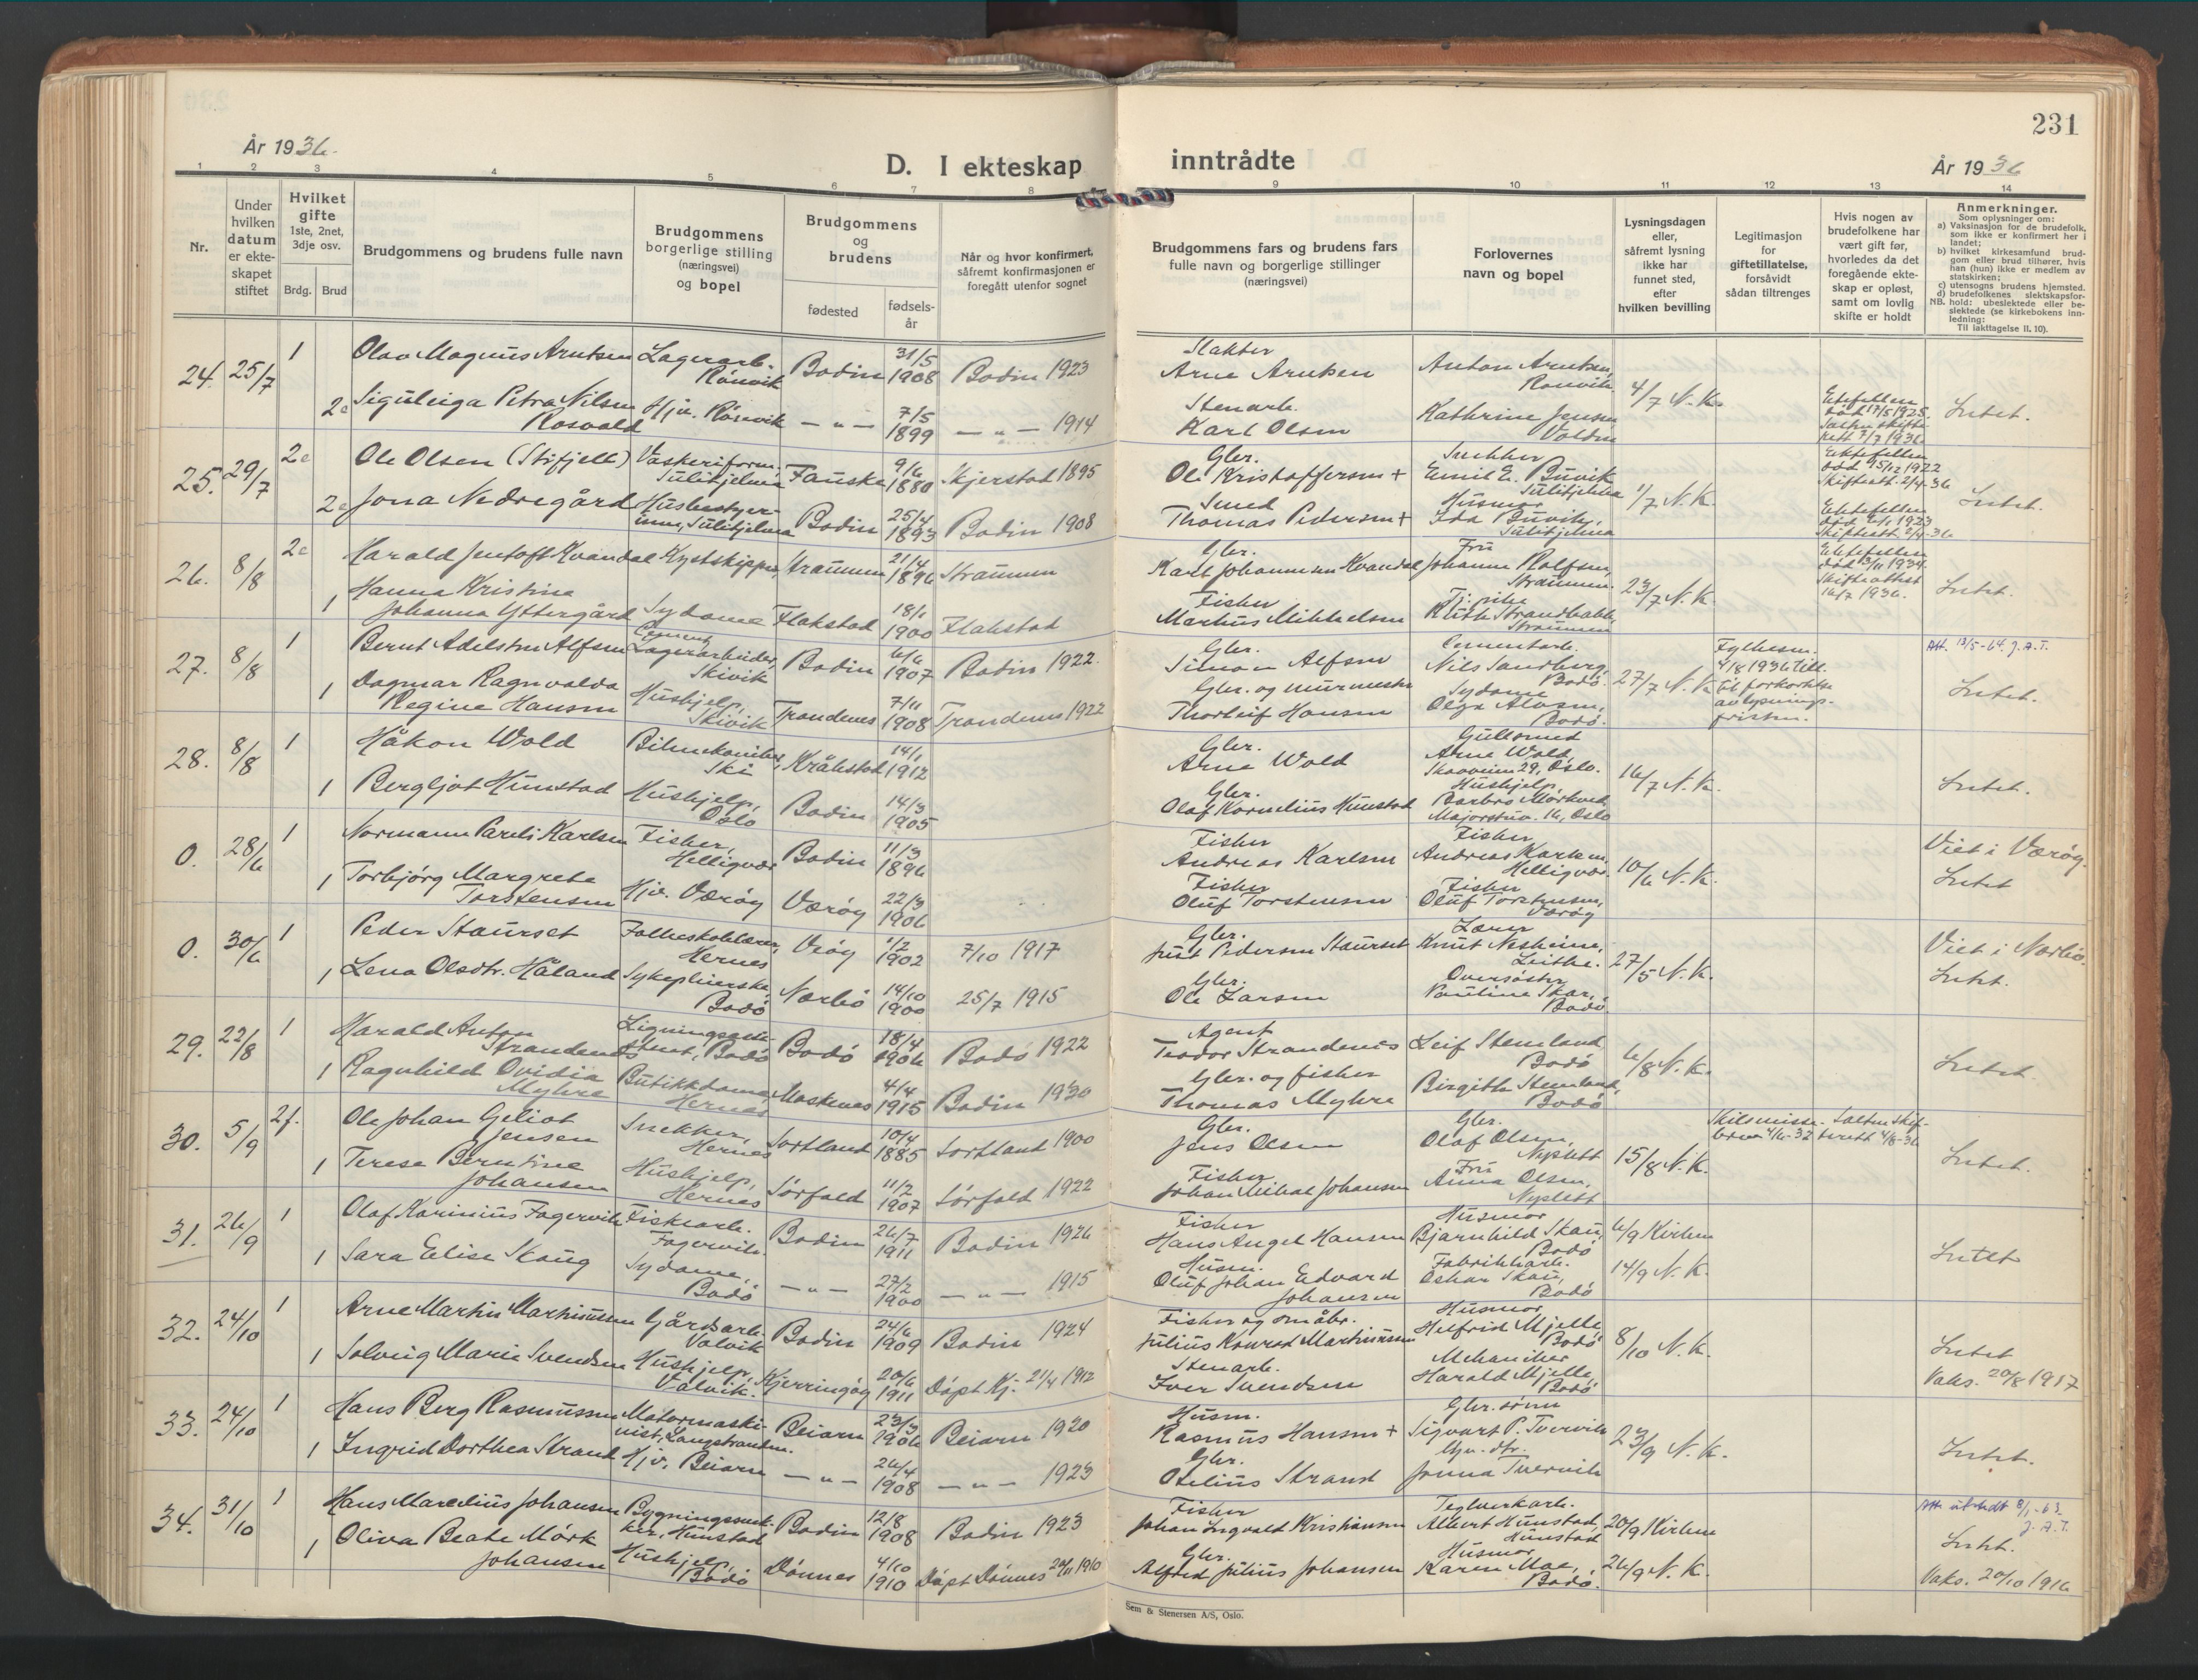 231
År 1936.
D. I ekteskap inntrådte
År 1936
1 2 3 4 5 6 7 8 9 10 11 12 13 14
Nr.
Under hvilken datum er ekteskapet stiftet
Hvilket gifte 1ste, 2net, 3dje osv.
Brdg. Brud
Brudgommens og brudens fulle navn
Brudgommens borgerlige stilling (næringsvei) og bopel
Brudgommens og brudens
fødested
fødselsår
Når og hvor konfirmert, såfremt konfirmasjonen er foregått utenfor sognet
Brudgommens fars og brudens fars fulle navn og borgerlige stillinger (næringsvei)
Forlovernes navn og bopel
Lysningsdagen eller, såfremt lysning ikke har funnet sted, efter hvilken bevilling
Legitimasjon for giftetillatelse, forsåvidt sådan tiltrenges
Hvis nogen av brudefolkene har vært gift før, hvorledes da det foregående ekteskap er opløst, samt om lovlig skifte er holdt
Anmerkninger.
Som oplysninger om:
a) Vaksinasjon for de brudefolk, som ikke er konfirmert her i landet;
b) hvilket kirkesamfund brudgom eller brud tilhører, hvis han (hun) ikke er medlem av statskirken;
c) utensogns brudens hjemsted.
d) brudefolkenes slektskapsforhold: ubeslektede eller beslektede (se kirkebokens innledning:
NB.
Til iakttagelse II. 10).
24. 25/7 1 Olav Magnus Arntsen Lagerarb. Rönvik Bodin 31/5 1908 Bodin 1923 Slakter Arne Arntsen Anton Arntsen, Rönvik 4/7 N.K.
2e Petra Nilsen Rosvold Hjv. Rönvik — " — 7/5 1899 — " — 1914 Stenarb. Karl Olsen Kathrine Jensen Ektefellen död 17/5 1925. Intet.
25. 29/7 2e Ole Olsen (Stifjell) Vaskeriform. Sulitjelma Fauske 9/6 1880 Skjerstad 1895 Gbr. Ole Kristoffersen + Snekker Emil E. Buvik Sulitjelma 1/7 N.K. Ektefellen död 15/12 1922 Skifteatt. 2/4-36
2e Jona Nedregård Husbestyrerinne, Sulitjelma Bodin 25/4 1893 Bodin 1908 Smed Thomas Pedersen + Husmor Ida Buvik, Sulitjelma Ektefellen Skifteatt. Intet.
26. 8/8 2e Harald Jentoft Kvandal Kystskipper, Straumen 21/4 1896 Straumen Gbr. Karl Johannesen Kvandal Fru Johanne Rolfsen, Straumen 23/7 N.K. Ektefellen död 13/11 1934. Skifteattest 16/7 1936.
1 Hanna Kristine Johanna Yttergård Sydame Flakstad 18/1 1900 Flakstad Fisker Markus Mikkelsen Tj.pike Ruth Strandbakk, Straumen Intet.
27. 8/8 1 Bernt Adelsten Alfsen Cement Lagerarbeider, Skivik Bodin 6/6 1907 Bodin 1922. Gbr. Simon Alfsen Cementarb. Nils Sandberg, Bodö. 27/7 N.K. Fylkesm. 4/8 1936 till. til forkortelse av lysningsfristen. Att. 13/5-64. J.A.T.
1 Dagmar Ragnvalda Regine Hansen Hushjelp, Skivik Trondenes 7/11 1908 Trondenes 1922 Gbr. og murmester Thorleif Hansen Sydame Olga Alvsen, Bodö. Intet.
28. 8/8 1 Håkon Wold Bilmekaniker, Ski Kråkstad 14/1 1912 Gbr. Arne Wold Gullsmed Arne Wold, Skovveien 29, Oslo. 16/7 N.K.
1 Bergljot Hunstad Hushjelp, Oslo Bodin 14/3 1905 Gbr. Olaf Kornelius Hunstad Hushjelp, Barbro Mörkved, Majorstuv. 16, Oslo Intet.
0. 28/6 1 Normann Pareli Karlsen Fisker, Helligvær Bodin 11/3 1896 Fisker Andreas Karlsen Fisker, Andreas Karlsen, Helligvær 10/6 N.K. Viet i Værøy.
1 Torbjørg Margrete Torstensen Hjv. Værøy Værøy 22/3 1906 Fisker Oluf Torstensen Fisker Oluf Torstensen, Værøy Intet
0. 30/6 1 Peder Staurset Folkeskolelærer, Hernes Vröy 1/2 1902 7/10 1917 Gbr. Just Pedersen Staurset Lærer Knut Nesheim, 27/5 N.K. Viet i Nærbö.
1 Lena Olsdtr. Håland Sykepleierske Bodö Nærbö 14/10 1900 25/7 1915 Gbr. Ole Larsen Oversöster Pauline Skar, Bodö. Intet.
29. 22/8 1 Harald Anton Strandenes Ligningsassistent, Bodö Bodö 18/4 1906 Bodö 1922 Agent Teodor Strandenes Leif Steneland Bodö 6/8 N.K.
1 Ragnhild Ovidia Myhre Butikkdame, Hernes Moskenes 4/4 1915 Bodin 1930 Gbr. og fisker Thomas Myhre Birgith Steneland, Bodö Intet.
30. 5/9 2f. Ole Johan Geliot Jensen Snekker, Hernes Sortland 10/4 1885 Sortland 1900 Gbr. Jens Olsen Gbr. Olaf Olsen, Nyslett 15/8 N.K. Skilsmisse Salten skifterett 4/8-36
1 Terese Berntine Johansen Hushjelp, Hernes Sörfold 11/2 1907 Sörfold 1922 Fisker Johan Mikal Johansen Fru Anna Olsen, Nyslett Intet.
31. 26/9 1 Olaf Karinius Fagervik Fiskearb. Fagervik. Bodin 26/7 1911 Bodin 1926 Fisker Hans Angel Hansen Husmor Bjarnhild Skau, Bodö 6/9 Kirken
1 Sara Elise Skaug Sydame, Bodö — " — 27/2 1900 — " — 1915 Husm. Oluf Johan Edvard Johansen Fabrikkarb. Oskar Skau, Bodö 14/9 N.K. Intet
32. 24/10 1 Arne Martin Martinussen Gårdsarb. Valvik Bodin 24/6 1909 Bodin 1924 Fisker og småbr. Julius Konrad Martinussen Husmor Helfrid Mjelle, Bodö 8/10 N.K. Intet
1 Solveig Marie Svendsen Hushjelp, Valvik. Kjerringöy 20/6 1911 Döpt Kj. 21/4 1912 Stenarb. Iver Svendsen Mekaniker Harald Mjelle, Bodö Vaks. 20/8 1917
33. 24/10 1 Hans Berg Rasmussen Motormaskinist, Langstranden. Beiarn 23/3 1906 Beiarn 1920 Husm. Rasmus Hansen + Gbr. sönn Sigvart P. Tverrvik 23/9 N.K.
1 Ingrid Dorthea Strand Hjv. Beiarn — " — 26/4 1908 — " — 1923 Gbr. Otelius Strand Jonna Tverrvik Intet.
34. 31/10 1 Hans Marelius Johansen Bygningssnekker, Hunstad Bodin 12/8 1908 Bodin 1923 Fisker Johan Ingvald Kristiansen Teglverkarb. Albert Hunstad, Hunstad 20/9 Kirken Att. utstedt 8/1-63. J.A.T.
1 Oliva Beate Mörk Johansen Hushjelp, Bodö Dönnes 4/10 1910 Döpt Dönnes 20/11 1910 Gbr. Alfred Julius Johansen Husmor Karen Moe, Bodö. 26/9 N.K. Intet. Vaks. 20/10 1916
Sem & Stenersen A/S, Oslo.